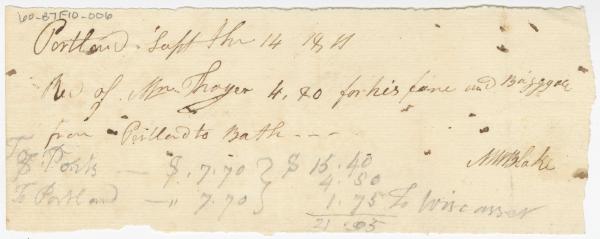 60-87F10-006
Portland. Sept the 14 1811
Rec of Mr. Thayer 4,80 for his fare and Baggage
from Portland to Bath - - -
M W Blake
To Ports — $. 7.70 } $ 15.40
4.80
To Portland — " 7.70 } 1.75 To Wiscasset
21.95